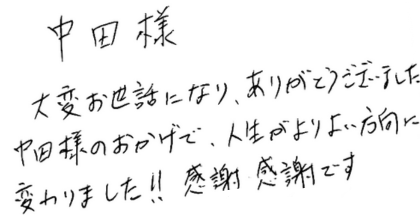 中田様
大変お世話になり、ありがとうございました
中田様のおかげで、人生がよりよい方向に
変わりました!! 感謝 感謝です